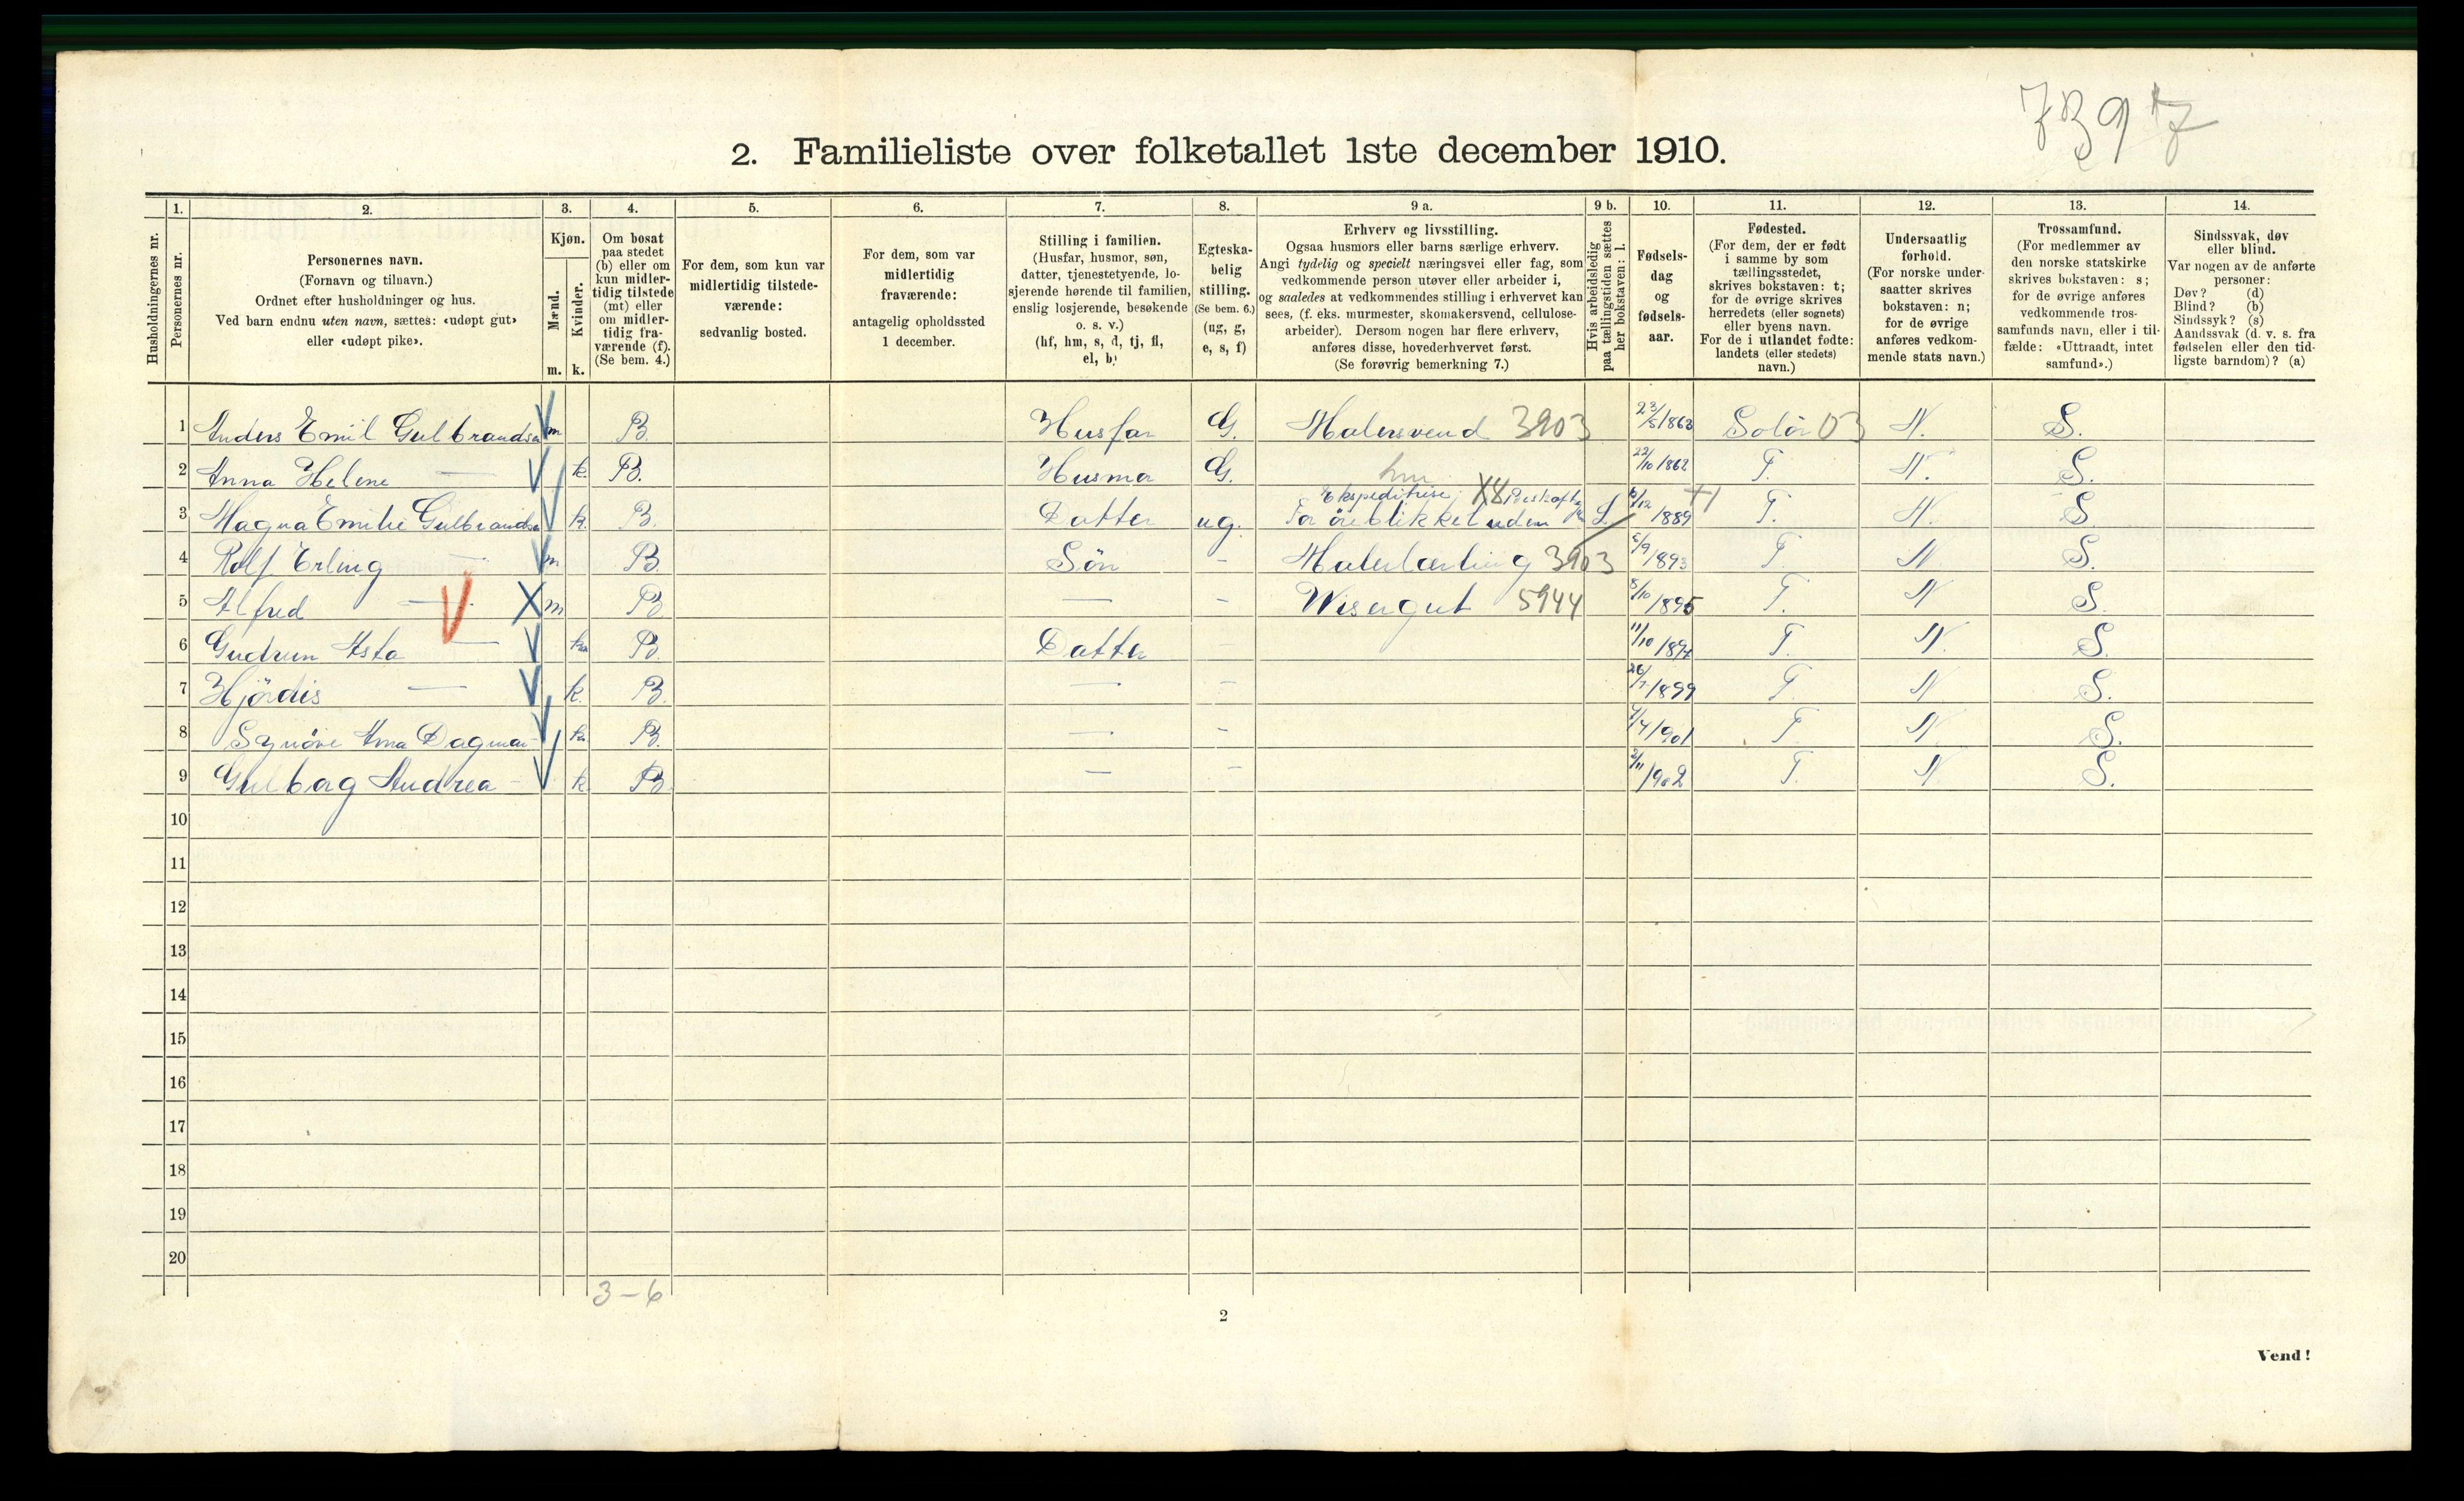 7397
2. Familieliste over folketallet 1ste december 1910.
Husholdningernes nr.
1. Personernes nr.
2. Personernes navn.
(Fornavn og tilnavn.)
Ordnet efter husholdninger og hus.
Ved barn endnu uten navn, sættes: «udøpt gut»
eller «udøpt pike».
3. Kjøn.
Mænd. m.
Kvinder. k.
4. Om bosat
paa stedet
(b) eller om
kun midler-
tidig tilstede
(mt) eller
om midler-
tidig fra-
værende (f).
(Se bem. 4.)
5. For dem, som kun var
midlertidig tilstede-
værende:
sedvanlig bosted.
6. For dem, som var
midlertidig
fraværende:
antagelig opholdssted
1 december.
7. Stilling i familien.
(Husfar, husmor, søn,
datter, tjenestetyende, lo-
sjerende hørende til familien,
enslig losjerende, besøkende
o. s. v.)
(hf, hm, s, d, tj, fl,
el, b)
8. Egteska-
belig
stilling.
(Se bem. 6.)
(ug, g,
e, s, f)
9 a. Erhverv og livsstilling.
Ogsaa husmors eller barns særlige erhverv.
Angi tydelig og specielt næringsvei eller fag, som
vedkommende person utøver eller arbeider i,
og saaledes at vedkommendes stilling i erhvervet kan
sees, (f. eks. murmester, skomakersvend, cellulose-
arbeider). Dersom nogen har flere erhverv,
anføres disse, hovederhvervet først.
(Se forøvrig bemerkning 7.)
9 b. Hvis arbeidsledig
paa tællingstiden sættes
her bokstaven: l.
10. Fødsels-
dag
og
fødsels-
aar.
11. Fødested.
(For dem, der er født
i samme by som
tællingsstedet,
skrives bokstaven: t;
for de øvrige skrives
herredets (eller sognets)
eller byens navn.
For de i utlandet fødte:
landets (eller stedets)
navn.)
12. Undersaatlig
forhold.
(For norske under-
saatter skrives
bokstaven: n;
for de øvrige
anføres vedkom-
mende stats navn.)
13. Trossamfund.
(For medlemmer av
den norske statskirke
skrives bokstaven: s;
for de øvrige anføres
vedkommende tros-
samfunds navn, eller i til-
fælde: «Uttraadt, intet
samfund».)
14. Sindssvak, døv
eller blind.
Var nogen av de anførte
personer:
Døv? (d)
Blind? (b)
Sindssyk? (s)
Aandssvak (d. v. s. fra
fødselen eller den tid-
ligste barndom)? (a)
1 Anders Emil Gulbrandsen m B. Husfar G. Malersvend 3903 23/5 1863 Solör 03 N. S.
2 Anna Helene — k. B. Husmo G. hm 22/10 1862 T. N. S.
3 Magna Emilie Gulbrandsen k. B. Datter ug. Ekspeditrise For öieblikket uden L. 6/12 1889 T. N. S.
4 Rolf Erling — m B. Sön - Malerlærling 3903 6/9 1893 T. N S.
5 Alfred — m B — - Wisergut 5944 8/10 1895 T. N S.
6 Gudrun Asta — k B. Datter - 11/10 1897 T. N. S.
7 Hjördis — k. B. — - 26/7 1899 T. N S.
8 Synöve Anna Dagmar - k B. — - 4/4 1901 T. N S.
9 Gulborg Andrea - k B. — - 2/11 1902 T. N S.
10
11
12
13
14
15
16
17
18
19
20
3-6
2
Vend!